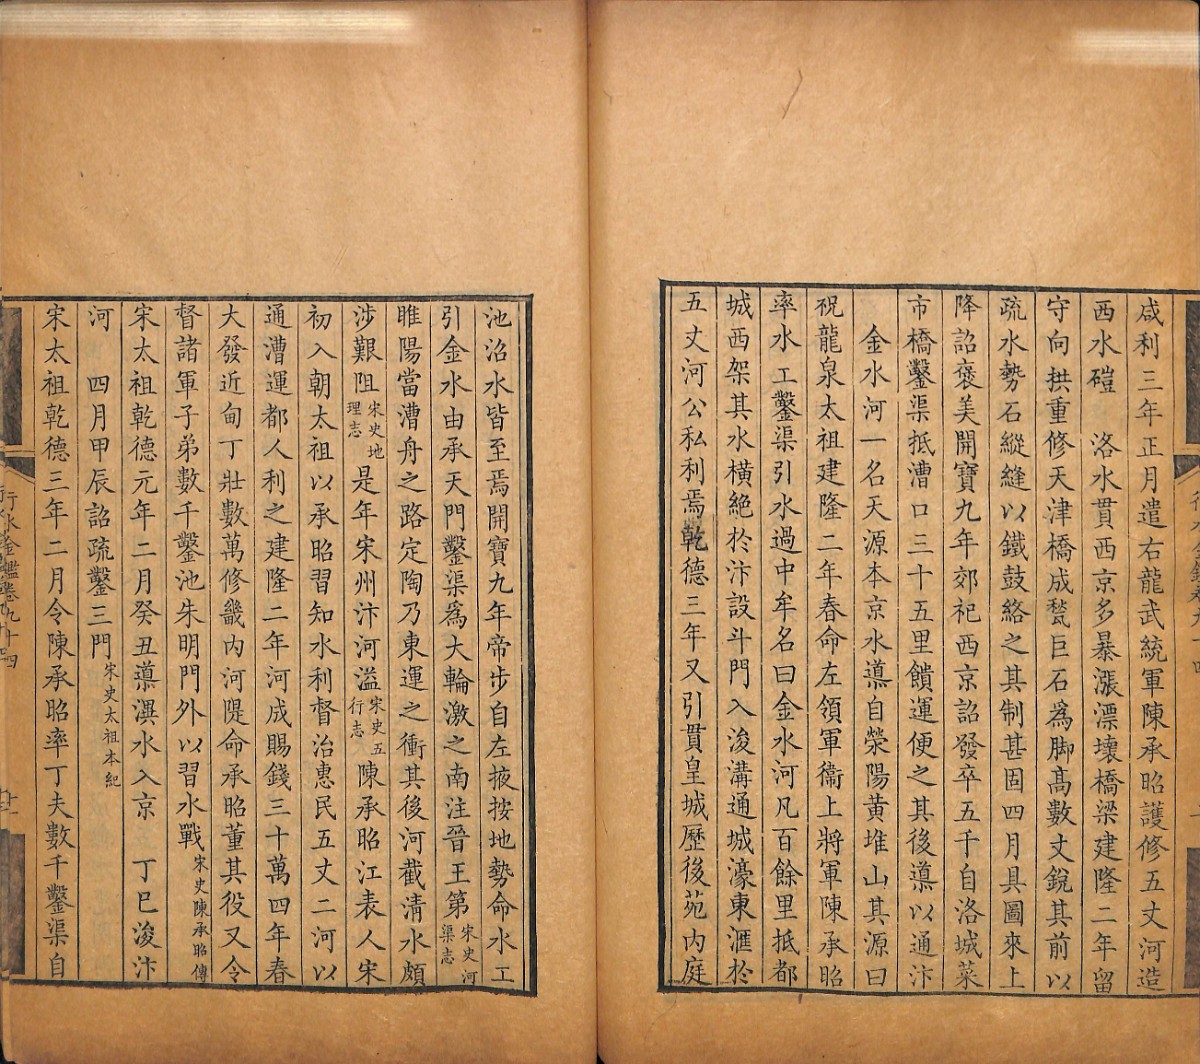 咸利三年正月遣右龍武統軍陳承昭護修五丈河造
西水磑　洛水貫西京多暴漲漂壞橋梁建隆二年留
守向拱重修天津橋成甃巨石為脚髙數丈銳其前以
疏水勢石縱縫以鐵鼓絡之其制甚固四月具圖來上
降詔褒美開寶九年郊祀西京詔發卒五千自洛城菜
市橋鑿渠抵漕口三十五里饋運便之其後導以通汴
金水河一名天源本京水導自滎陽黄堆山其源曰
祝龍泉太祖建隆二年春命左領軍衞上將軍陳承昭
率水工鑿渠引水過中牟名曰金水河凡百餘里抵都
城西架其水橫絶於汴設斗門入浚溝通城濠東滙於
五丈河公私利焉乾德三年又引貫皇城歷後苑内庭
池沼水皆至焉開寶九年帝步自左掖按地勢命水工
引金水由承天門鑿渠爲大輪激之南注晉王第宋史河渠志
睢陽當漕舟之路定陶乃東運之衝其後河截清水頗
涉艱阻宋史地理志是年宋州汴河溢宋史五行志陳承昭江表人宋
初入朝太祖以承昭習知水利督治惠民五丈二河以
通漕運都人利之建隆二年河成賜錢三十萬四年春
大發近甸丁壯數萬修畿内河隄命承昭董其役又令
督諸軍子弟數千鑿池朱明門外以習水戰宋史陳承昭傳
宋太祖乾德元年二月癸丑導潩水入京　丁巳浚汴
河　四月甲辰詔疏鑿三門宋史太祖本紀
宋太祖乾德三年二月令陳承昭率丁夫數千鑿渠自
行水金鑑卷九十四